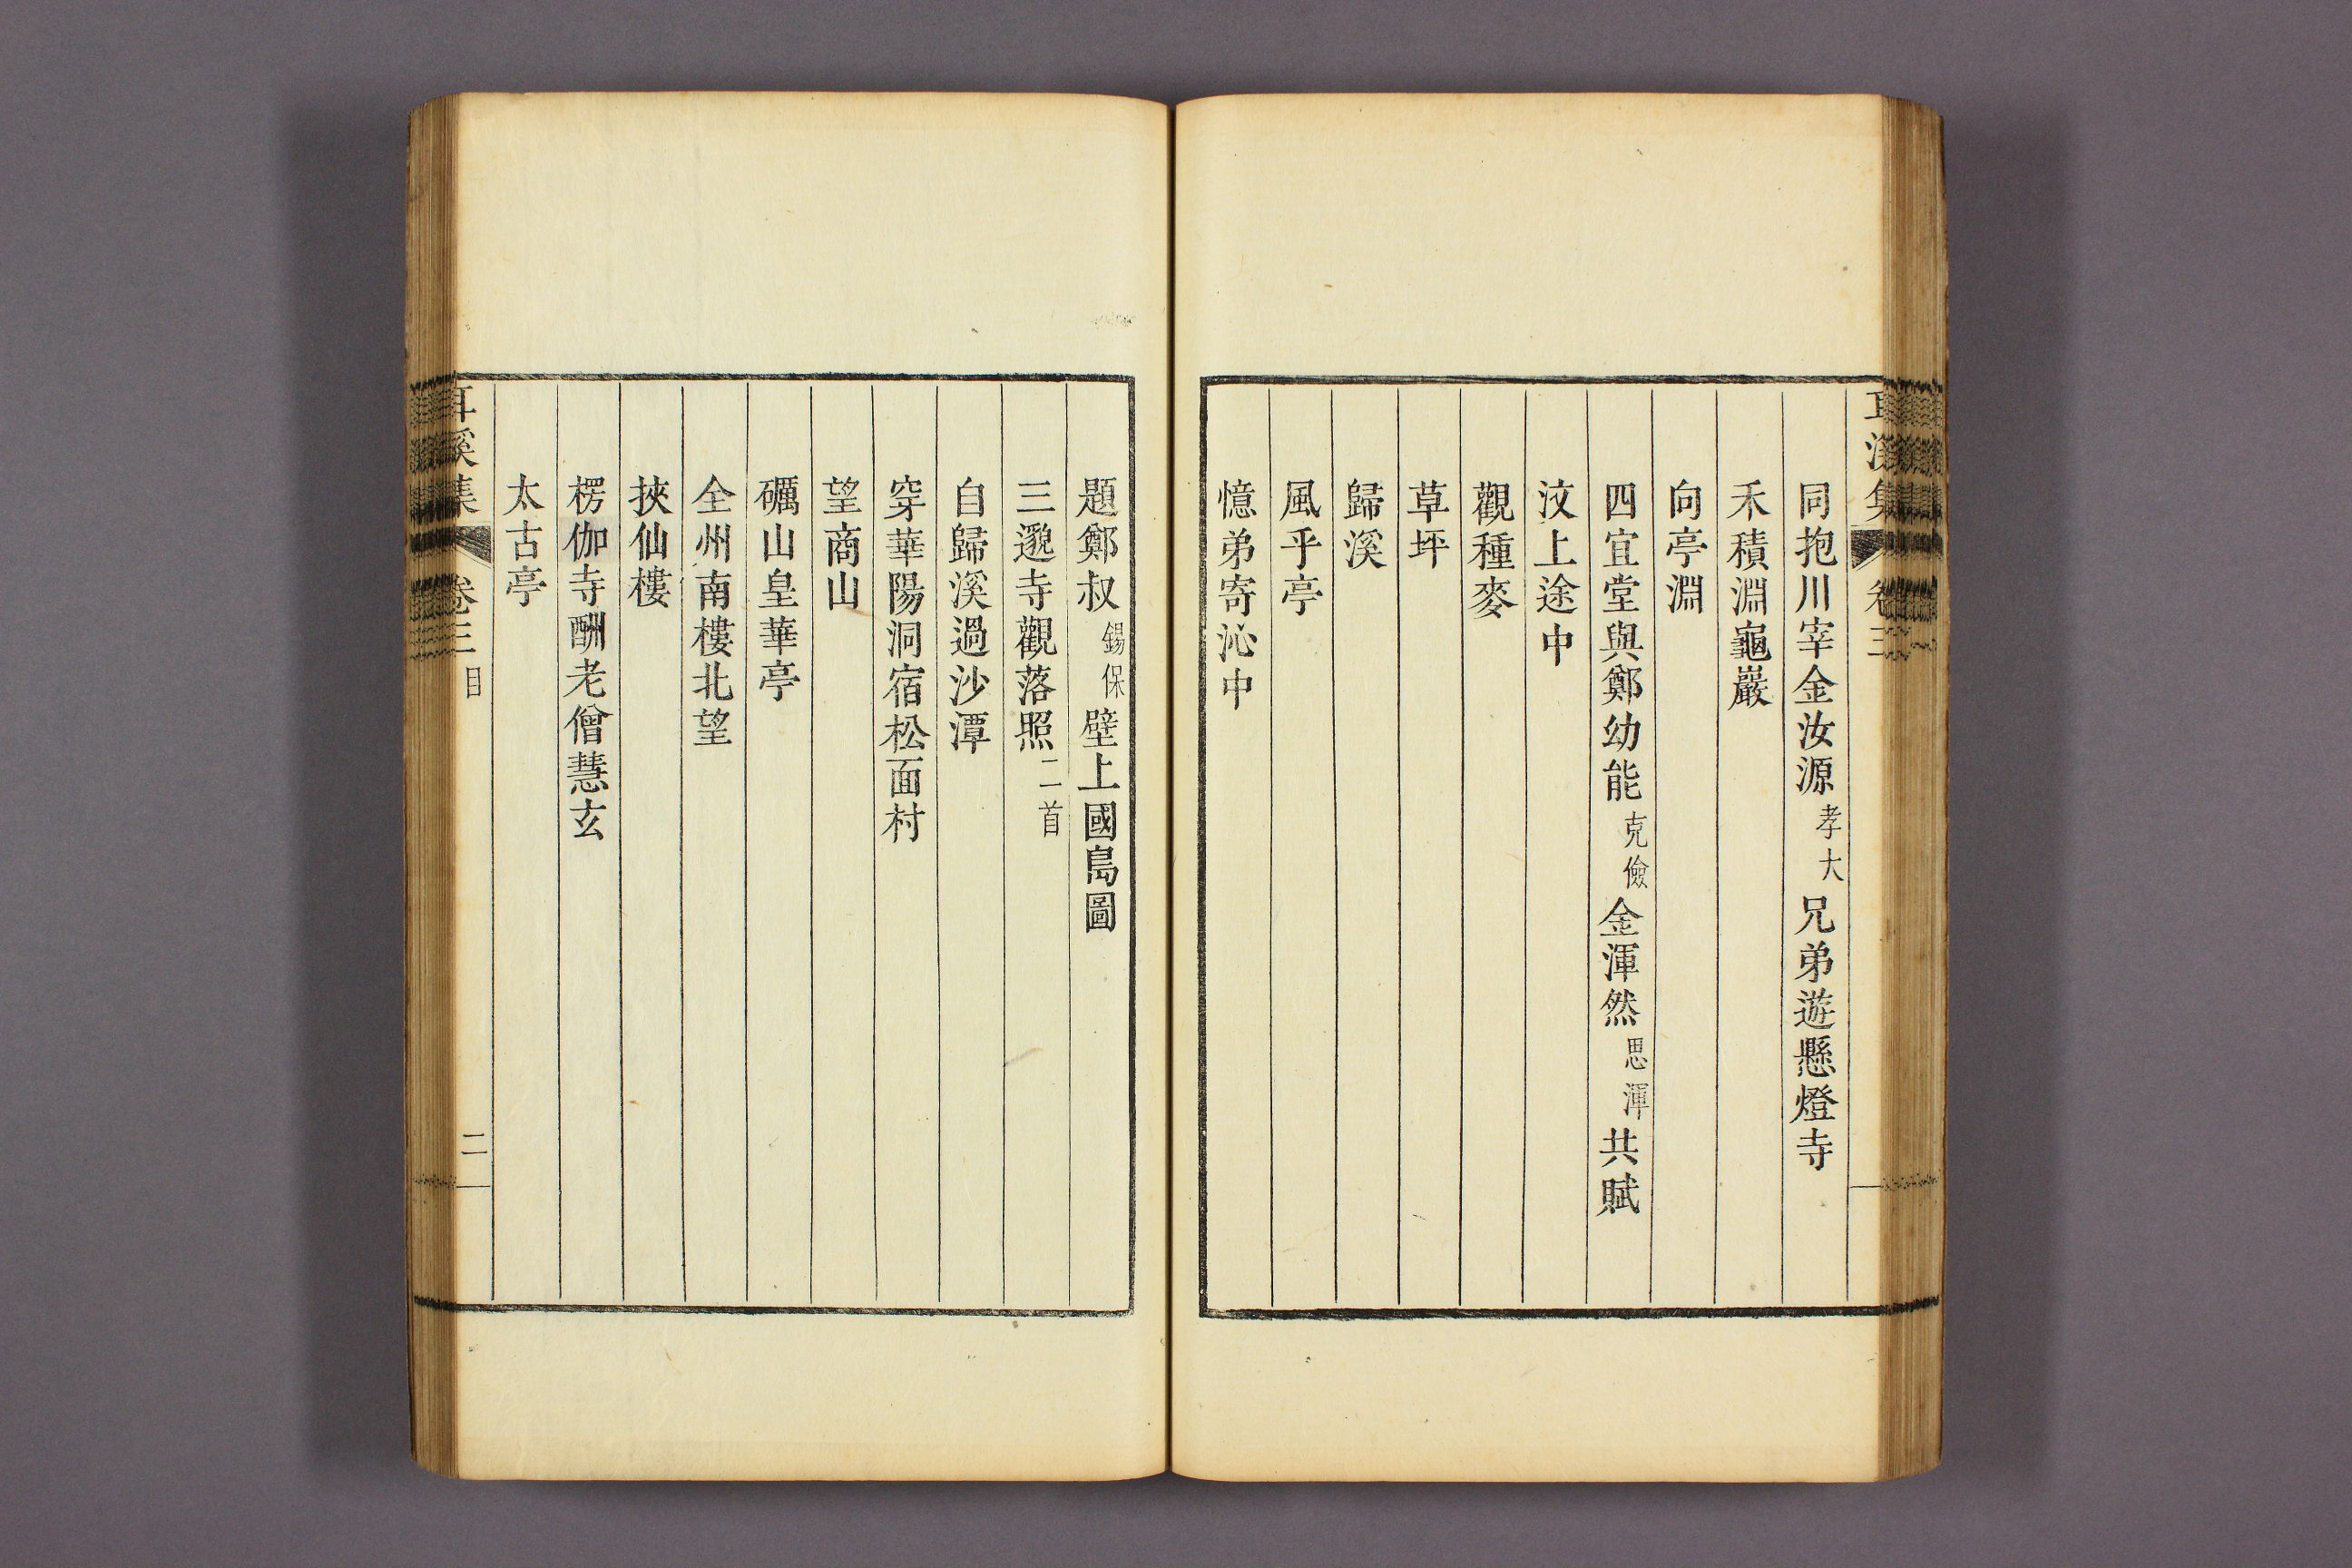 耳溪集 卷三
同抱川宰金汝源孝大兄弟遊懸燈寺
禾積淵龜巖
向亭淵
四宜堂與鄭幼能克儉金渾然思渾共賦
汶上途中
觀種麥
草坪
歸溪
風乎亭
憶弟寄沁中
題鄭叔錫保壁上國島圖
三邈寺觀落照二首
自歸溪過沙潭
穿華陽洞宿松面村
望商山
礪山皇華亭
全州南樓北望
挾仙樓
楞伽寺酬老僧慧玄
太古亭
耳溪集 卷三 目 二